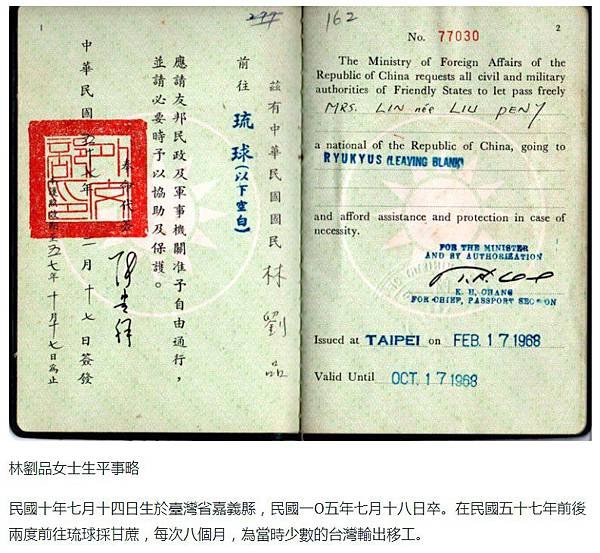 1
277
茲有中華民國國民林劉品
前往 琉球(以下空白)
應請友邦民政及軍事機關准予自由通行，
並請必要時予以協助及保護。
奉命代簽
中華民國五十七年二月十七日簽發
五七年十月十七日為止
162
2
No. 77030
The Ministry of Foreign Affairs of the
Republic of China requests all civil and military
authorities of Friendly States to let pass freely
MRS. LIN née LIU PENY
a national of the Republic of China, going to
RYUKYUS (LEAVING BLANK)
and afford assistance and protection in case of
necessity.
FOR THE MINISTER
AND BY AUTHORIZATION
K. H. CHANG
FOR CHIEF, PASSPORT SECTION
Issued at TAIPEI on FEB. 17 1968
Valid Until OCT. 17 1968
林劉品女士生平事略
民國十年七月十四日生於臺灣省嘉義縣，民國一O五年七月十八日卒。在民國五十七年前後
兩度前往琉球採甘蔗，每次八個月，為當時少數的台灣輸出移工。